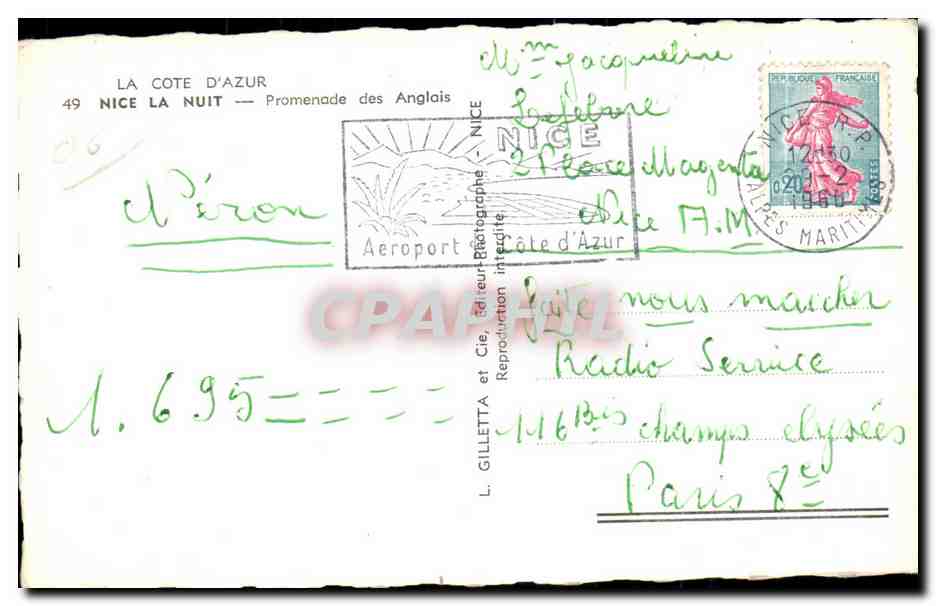 LA COTE D'AZUR
49 NICE LA NUIT — Promenade des Anglais
Néron
1.695 = = = =
NICE
Aeroport de la Côte d'Azur
L. GILLETTA et Cie, Editeur-Photographe - NICE
Reproduction interdite
Mme Jacqueline
Lefebvre
2 Place Magenta
Nice A.M.
faite nous marcher
Radio Service
116 Bis champs elysées
Paris 8e
REPUBLIQUE FRANÇAISE
0,20
POSTES
NICE R.P.
12H30
-2
1960
ALPES MARITIMES
CPAPHIL